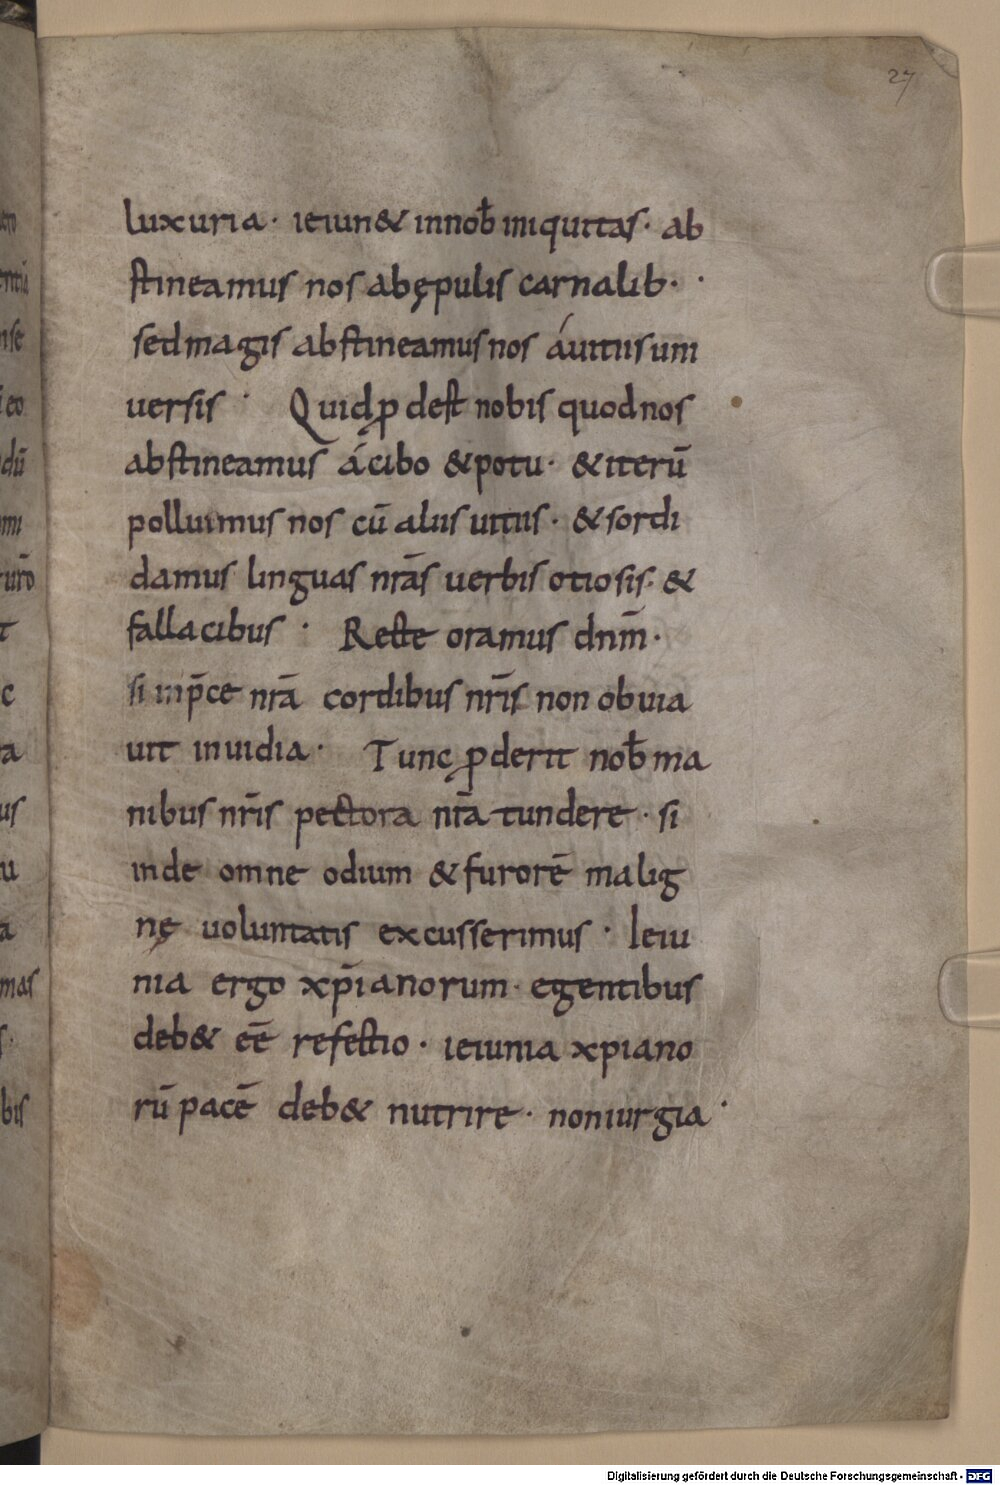 27
luxuria· ieiun& innob̄ iniquitas· ab
stineamus nos abępulis carnalib· ·
sed magis abstineamus nos áuitiis uni
uersis · Quid ꝓdest nobis quod nos
abstineamus ácibo & potu· & iterū
polluimus nos cū aliis uitiis· & sordi
damus linguas nrās uerbis otiosis· &
fallacibus · Recte oramus dnm̄·
si inp̄ce nrā cordibus nrīs non obuia
uit inuidia· Tunc ꝓderit nob̄ ma
nibus nrīs pectora nrā tundere· si
inde omne odium & furorē malig
nę uoluntatis excusserimus · Ieiu
nia ergo xp̄ianorum· egentibus
deb& eē refectio· ieiunia xpiano
rū pacē deb& nutrire· non iurgia·
Digitalisierung gefördert durch die Deutsche Forschungsgemeinschaft - DFG